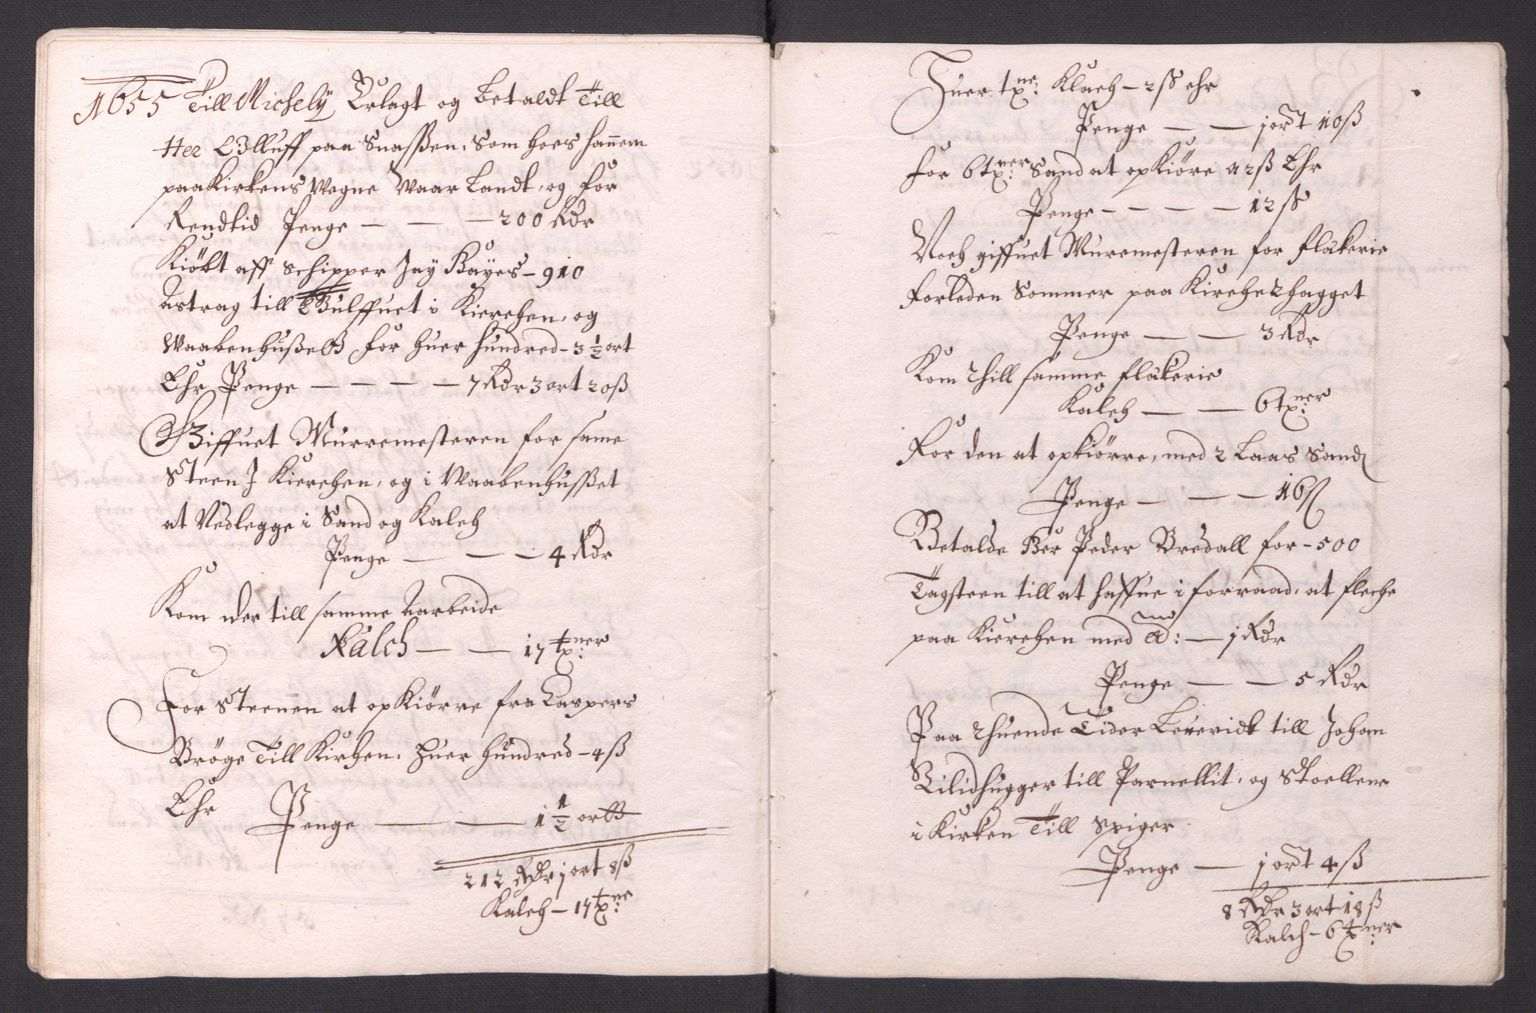 1655 Till Michely Erlagt og betaldt Till
Her Olluff paa Snassen, Som hoes hannem
paa Kirkens wegne waar Landt, og for
Rendtid Penge — — — 200 Rdr
Kiöbt aff Schipper Jay Bayes – 910
Astrag till Gulffuet i Kierchen, og
Waabenhußett for huer hundred – 3 1/2 ort
Ehr Penge — — — — 7 Rdr 3 ort 20 ß
Giffuet Murremesteren for same
Steen J Kierchen, og i Waabenhusset
at Nedlegge i Sand og Kalch
Penge — — — 4 Rdr
Kom der till samme Aarbeide
Kalch — — 17 tx:ner
For Steenen at opKiörre fra Caspers
Bröge Till Kirchen, huer hundred – 4 ß
Ehr Penge — — 1 1/2 ortt
212 Rdr j ort 8 ß
Kalch – 17 tx:ne
Huer tx:ne Klach – 2 ß ehr
Penge — — j ort 10 ß
for 6 tx:ner Sand at opKiöre a 2 ß Ehr
Penge – – – – 12 ß
Noch giffuet Muremesteren for flikerie
forleden Sommer paa Kirche thagget
Penge — — 3 Rdr
Kom thill samme flikerie
Kalch — — 6 tx:ner
For den at opkiörre, med 2 Laas Sand
Penge — — — 16 ß
Betalde Peder Bredall for – 500
Tagsteen till at haffue i forraad, at fleche
paa Kierchen med — j Rdr
Penge — — 5 Rdr
Paa thuende Tider Leueridt till Johan
Bilidhugger till Parnellit, og Stoellene
i Kirken Till Spiger
Penge — j ort 4 ß
8 Rdr 3 ort 18 ß
Kalch – 6 tx:ner